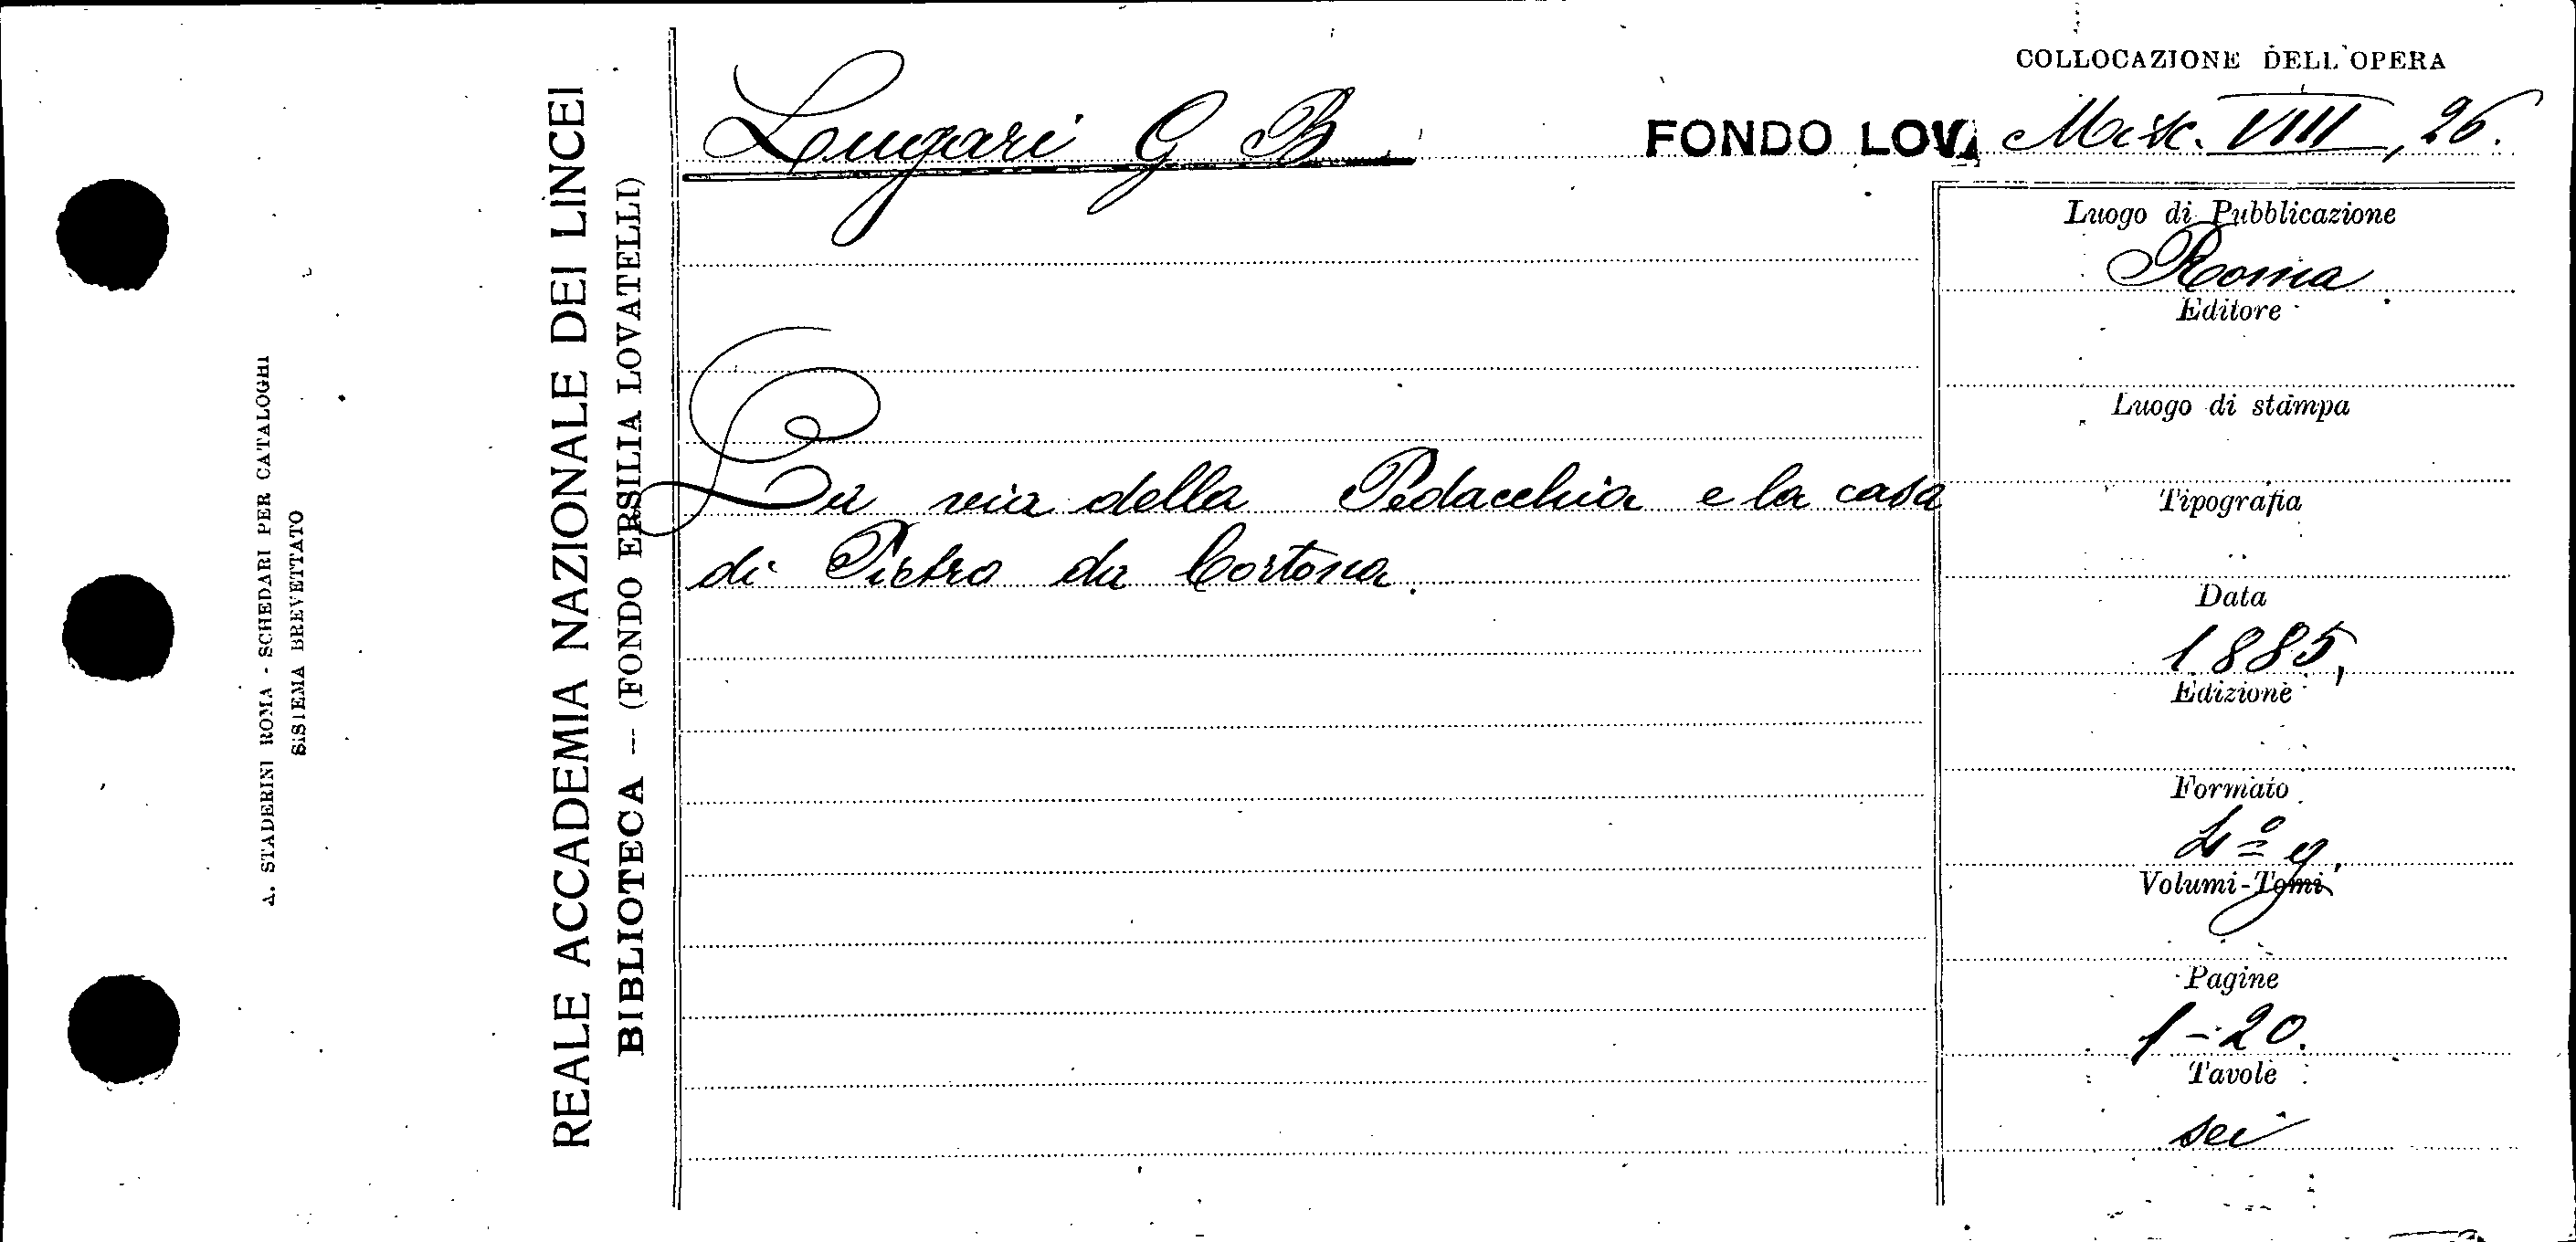 A. STADERINI ROMA - SCHEDARI PER CATALOGHI
SISTEMA BREVETTATO
REALE ACCADEMIA NAZIONALE DEI LINCEI
BIBLIOTECA — (FONDO ERSILIA LOVATELLI)
COLLOCAZIONE DELL'OPERA
Lugari G B
FONDO LOV. Misc. VIII, 26.
La via della Pedacchia e la casa
di Pietro da Cortona.
Luogo di Pubblicazione
Roma
Editore
Luogo di stampa
Tipografia
Data
1885,
Edizione
Formato
4º g.
Volumi-Tomi
Pagine
1-20.
Tavole
sei